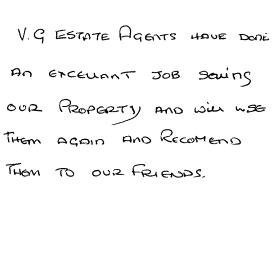 V.G ESTATE AGENTS HAVE DONE
AN EXCELLANT JOB SELLING
OUR PROPERTY AND WILL USE
THEM AGAIN AND RECOMEND
THEM TO OUR FRIENDS.